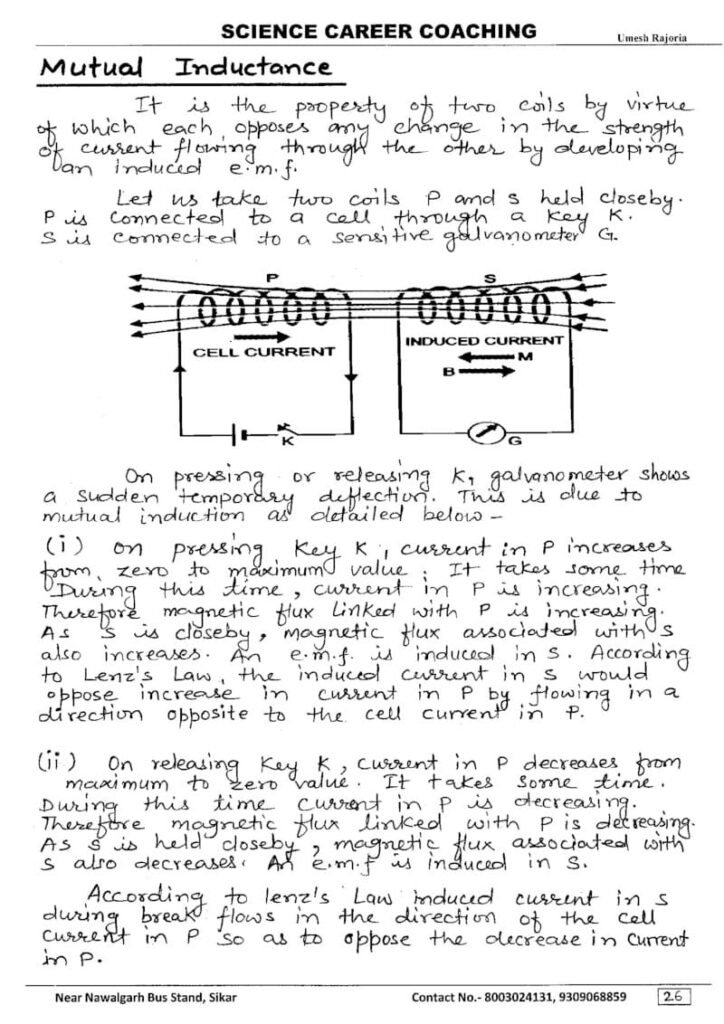 SCIENCE CAREER COACHING
Umesh Rajoria
Mutual Inductance
It is the property of two coils by virtue
of which each opposes any change in the strength
of current flowing through the other by developing
an induced e.m.f.
Let us take two coils P and S held closeby.
P is connected to a cell through a key K.
S is connected to a sensitive galvanometer G.
P S
CELL CURRENT
INDUCED CURRENT
M
B
K
G
On pressing or releasing K, galvanometer shows
a sudden temporary deflection. This is due to
mutual induction as detailed below –
(i) On pressing Key K, current in P increases
from zero to maximum value. It takes some time
During this time, current in P is increasing.
Therefore magnetic flux linked with P is increasing.
As S is closeby, magnetic flux associated with S
also increases. An e.m.f. is induced in S. According
to Lenz's Law, the induced current in S would
oppose increase in current in P by flowing in a
direction opposite to the cell current in P.
(ii) On releasing Key K, current in P decreases from
maximum to zero value. It takes some time.
During this time current in P is decreasing.
Therefore magnetic flux linked with P is decreasing.
As S is held closeby, magnetic flux associated with
S also decreases. An e.m.f is induced in S.
According to lenz's Law induced current in S
during break flows in the direction of the cell
current in P so as to oppose the decrease in current
in P.
Near Nawalgarh Bus Stand, Sikar
Contact No.- 8003024131, 9309068859
26